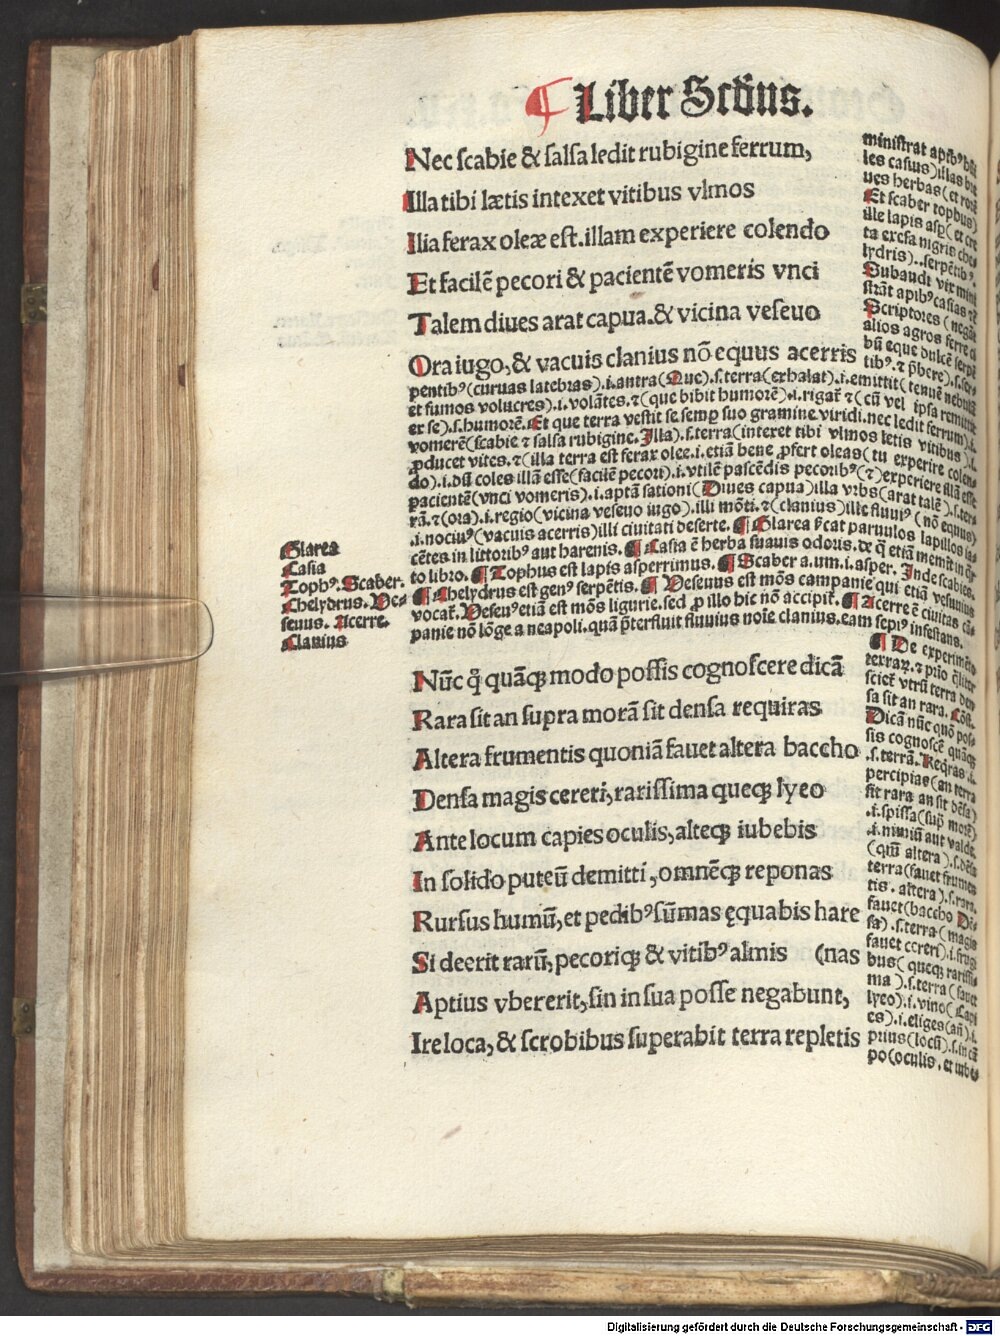 ¶ Liber Scd̄us.
Nec scabie & salsa ledit rubigine ferrum,
Illa tibi lætis intexet vitibus vlmos
Illa ferax oleæ est. illam experiere colendo
Et facilē pecori & pacientē vomeris vnci
Talem diues arat capua. & vicina veseuo
Ora iugo, & vacuis clanius nō equus acerris
ministrat apibꝰ
les casias) illas
ues herbas (et
Et scaber tophus)
ille lapis asp̄ (et cre
ta exesa nigris che
lydris). serpētibꝰ.
Subaudi vix mini
strāt apibꝰ casias
Scriptores (negāt
alios agros ferre
bū eque dulcē serpē
tibꝰ. ⁊ p̄bere).
pentibꝰ (curuas latebras) .i. antra (Que) .s. terra (exhalat) .i. emittit (tenuē nebulā
et fumos volucres) .i. volātes. ⁊ (que bibit humorē) .i. rigat̄ ⁊ (cū vel ipsa remittit
ex se) .s. humorē. Et que terra vestit se semꝑ suo gramine viridi. nec ledit ferrum) .i.
vomerē (scabie ⁊ salsa rubigine. Illa) .s. terra (intexet tibi vlmos letis vitibus) .i.
ꝓducet vites. ⁊ (illa terra est ferax olee .i. etiā bene ꝓfert oleas (tu experire colen
do) .i. dū coles illā esse (facilē pecori) .i. vtilē pascēdis pecoribꝰ (⁊) experiere illā esse
pacientē (vnci vomeris) .i. aptā sationi (Diues capua) illa vrbs (arat talē) .s. ter
rā. ⁊ (ora) .i. regio (vicina veseuo iugo) .i. illi mōti. ⁊ (clanius) ille fluuiꝰ (nō equus)
.i. nociuꝰ (vacuis acerris) illi ciuitati deserte. ¶ Glarea v̄cat paruulos lapillos ia
cētes in littoribꝰ aut harenis. ¶ Casia ē herba suauis odoris. de q̄ etiā memit in q̄r
to libro. ¶ Tophus est lapis asperrimus. ¶ Scaber a. um. i. asper. Inde scabies.
¶ Chelydrus est genꝰ serpētis. ¶ Veseuus est mōs campanie qui etiā vesuuius
vocat̄. Veseuꝰ etiā est mōs ligurie. sed ꝓ illo hic nō accipit̄. ¶ Acerre ē ciuitas cā
panie nō lōge a neapoli. quā p̄terfluit fluuius noīe clanius. eam sepiꝰ infestans.
Glarea
Casia
Tophꝰ. Scaber.
Chelydrus. Ve
seuus. Acerre.
Clanius
Nūc q̄ quāꝗ modo possis cognoscere dicā
Rara sit an supra morā sit densa requiras
Altera frumentis quoniā fauet altera baccho
Densa magis cereri, rarissima queꝗ lyeo
Ante locum capies oculis, alteꝗ iubebis
In solido puteū demitti, omnēꝗ reponas
Rursus humū, et pedibꝰ sūmas ęquabis hare
Si deerit rarū, pecoriꝗ & vitibꝰ almis (nas
Aptius vber erit, sin in sua posse negabunt,
Ire loca, & scrobibus superabit terra repletis
¶ De experimēto
terrarꝝ. ⁊ p̄io q̄liter
sciet̄ vtrū terra den
sa sit an rara. Cōst.
Dicā nūc quō pos
sis cognoscē quāꝗ
.s. terrā. Reqras .i.
percipias (an terra
sit rara an sit dēsa)
.i. spissa (sup̄ morē)
.i. nimiū aut valde.
(qm̄ altera) .s. dēsa
terra (fauet frumen
tis. altera) .s. rara.
fauet (baccho Dē
sa) .s. terra (magis
fauet cereri) .i. frugi
bus (queꝗ rarissi
ma) .s. terra (fauet
lyeo) .i. vino (Capi
es) .i. eliges (añ) .i.
prius (locū) .s. in cā
po (oculis. et iube
Digitalisierung gefördert durch die Deutsche Forschungsgemeinschaft - DFG